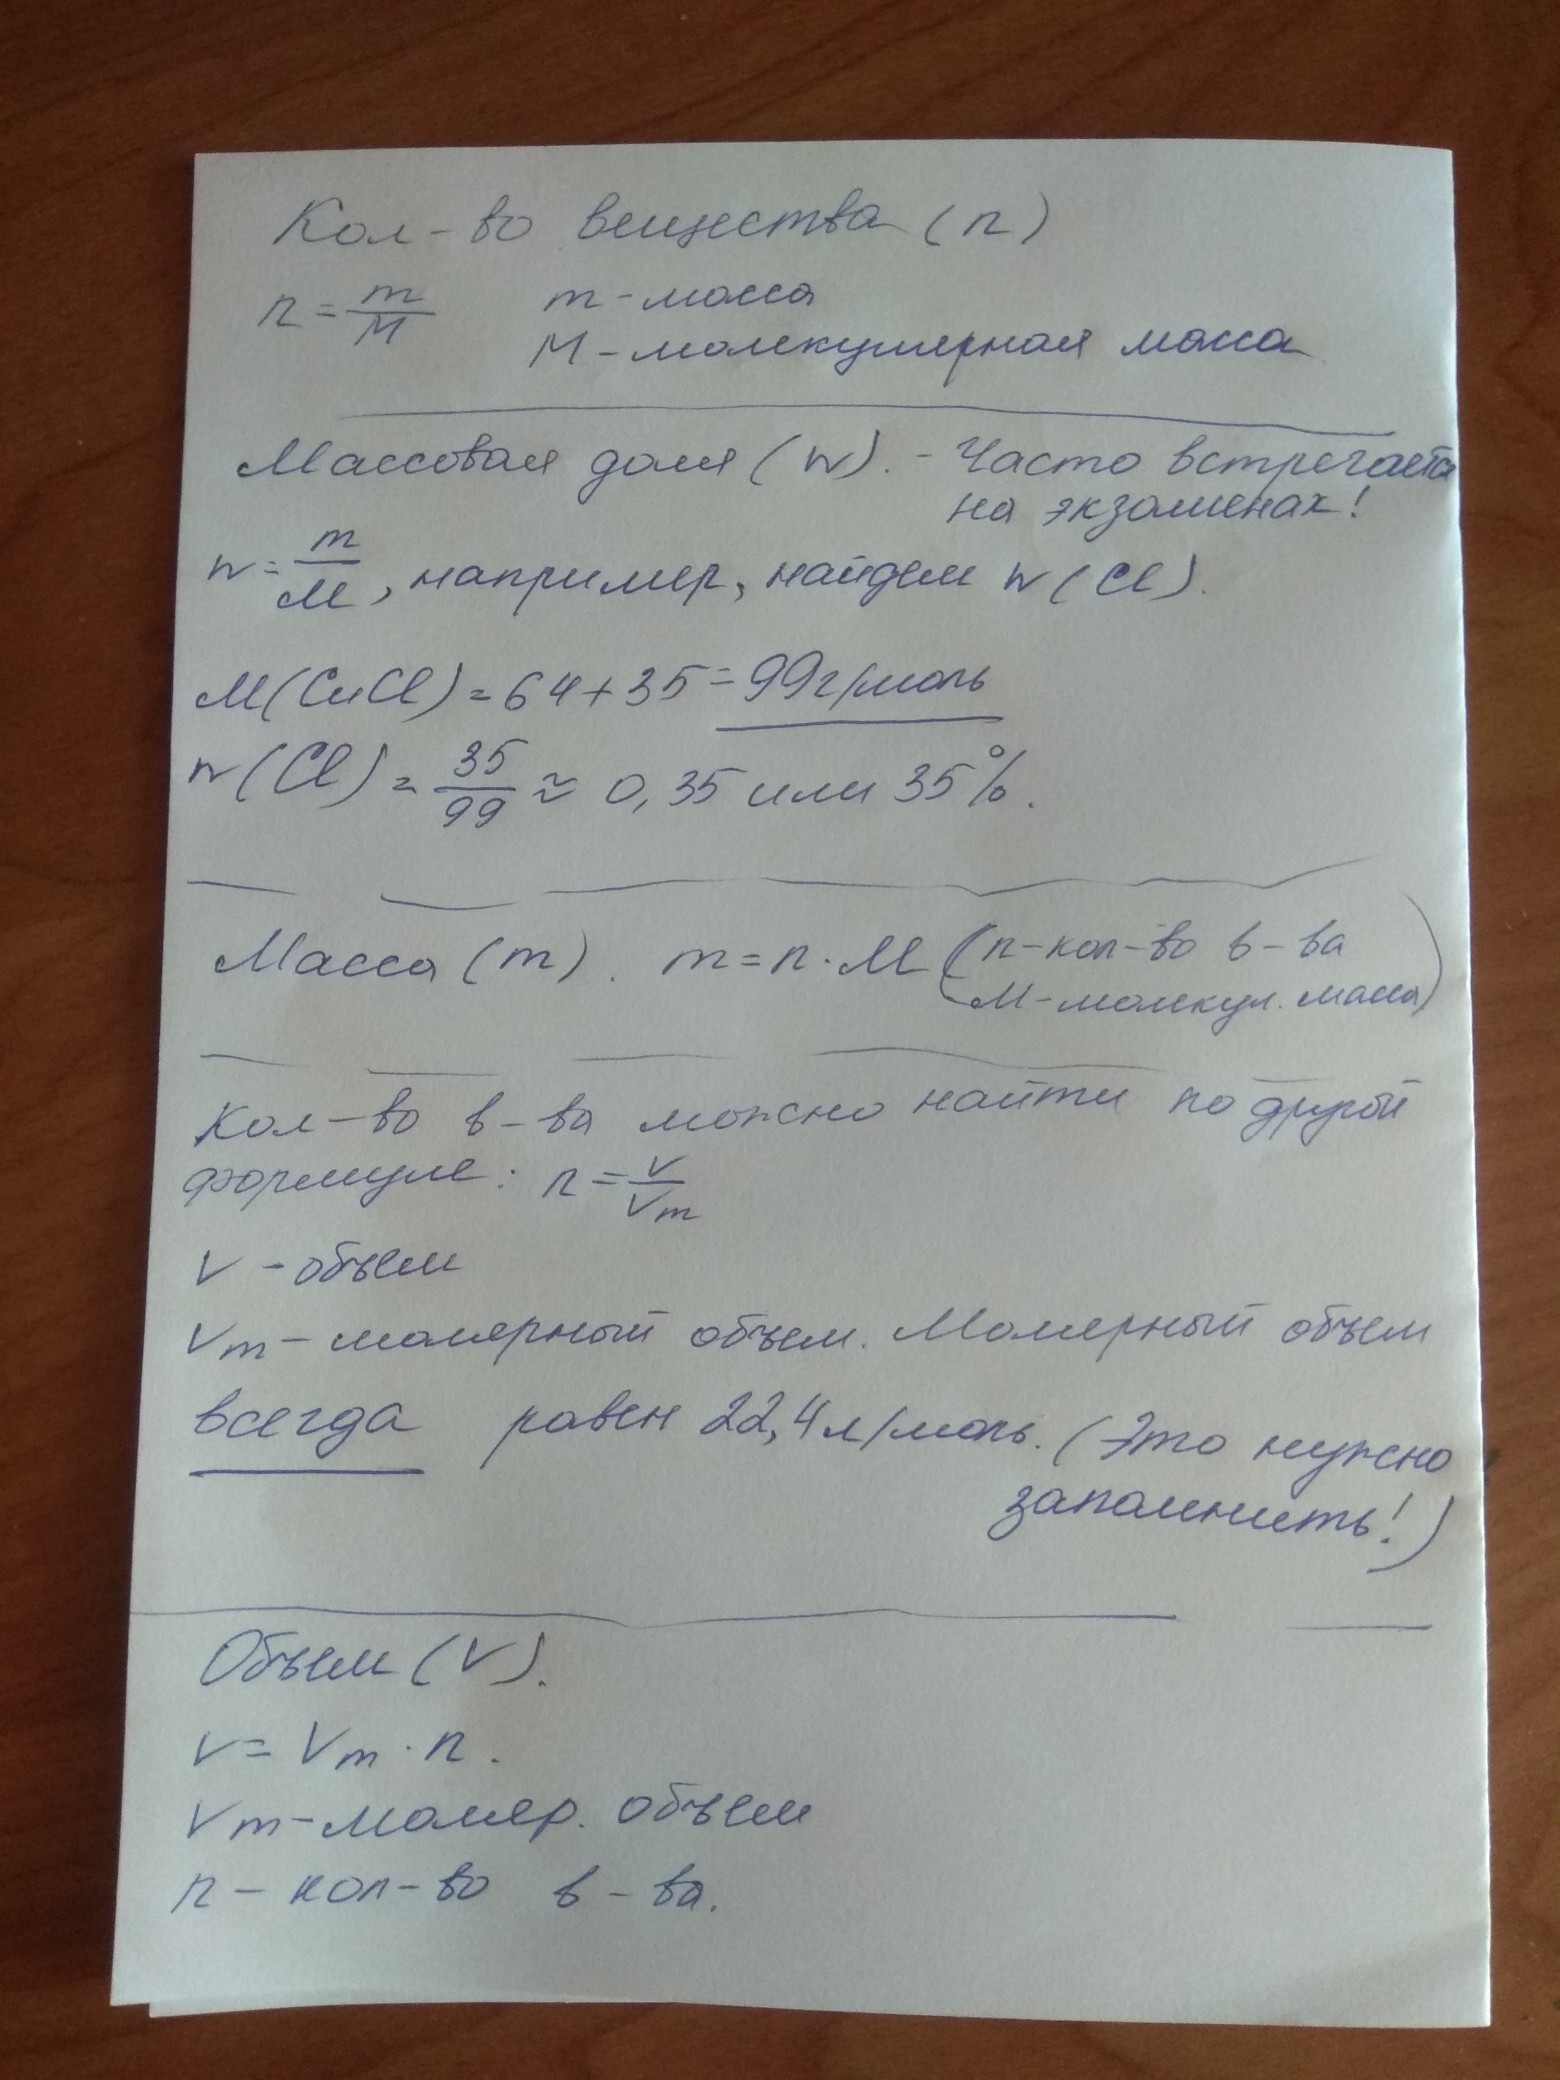 Кол-во вещества (n)
n = m/M m - масса
M - молекулярная масса
Массовая доля (w). - Часто встречается
на экзаменах!
w = m/M, например, найдем w(Cl).
M(CuCl) = 64 + 35 = 99 г/моль
w(Cl) = 35/99 ≈ 0,35 или 35%.
Масса (m). m = n · M (n - кол-во в-ва
M - молекул. масса)
Кол-во в-ва можно найти по другой
формуле: n = V/Vm
V - объем
Vm - молярный объем. Молярный объем
всегда равен 22,4 л/моль. (Это нужно
запомнить!)
Объем (V).
V = Vm · n.
Vm - моляр. объем
n - кол-во в-ва.